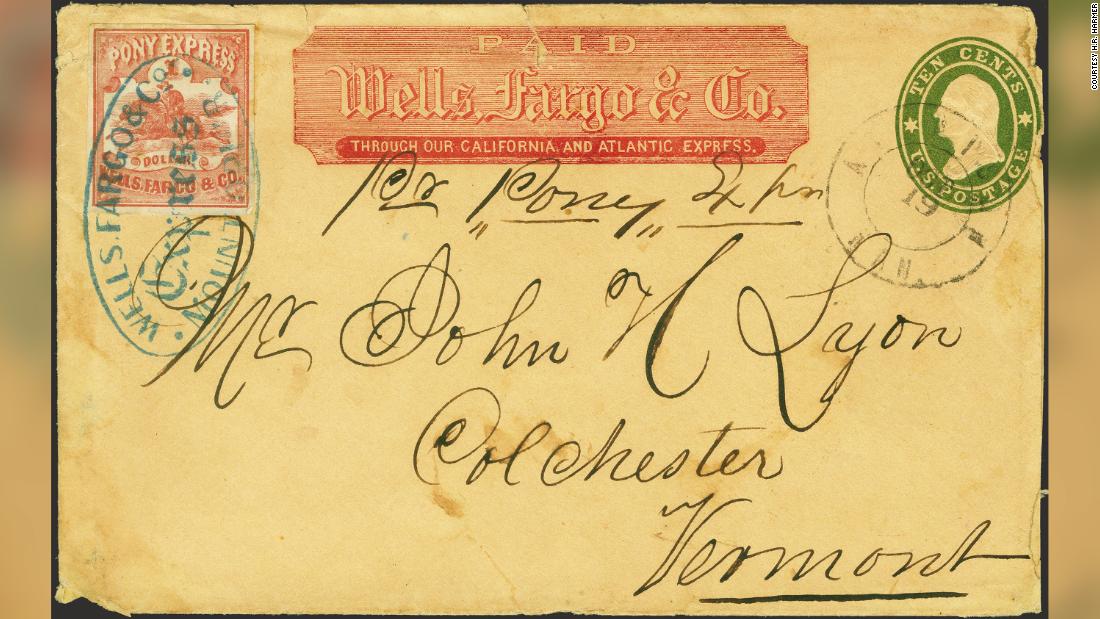 PONY EXPRESS
DOLLAR
WELLS, FARGO & CO.
WELLS, FARGO & CO.
PAID
Wells, Fargo & Co.
THROUGH OUR CALIFORNIA AND ATLANTIC EXPRESS.
TEN CENTS
U.S. POSTAGE
19
Pr „Poney„ Expn
Mr John H Lyon
Colchester
Vermont
COURTESY H.R. HARMER